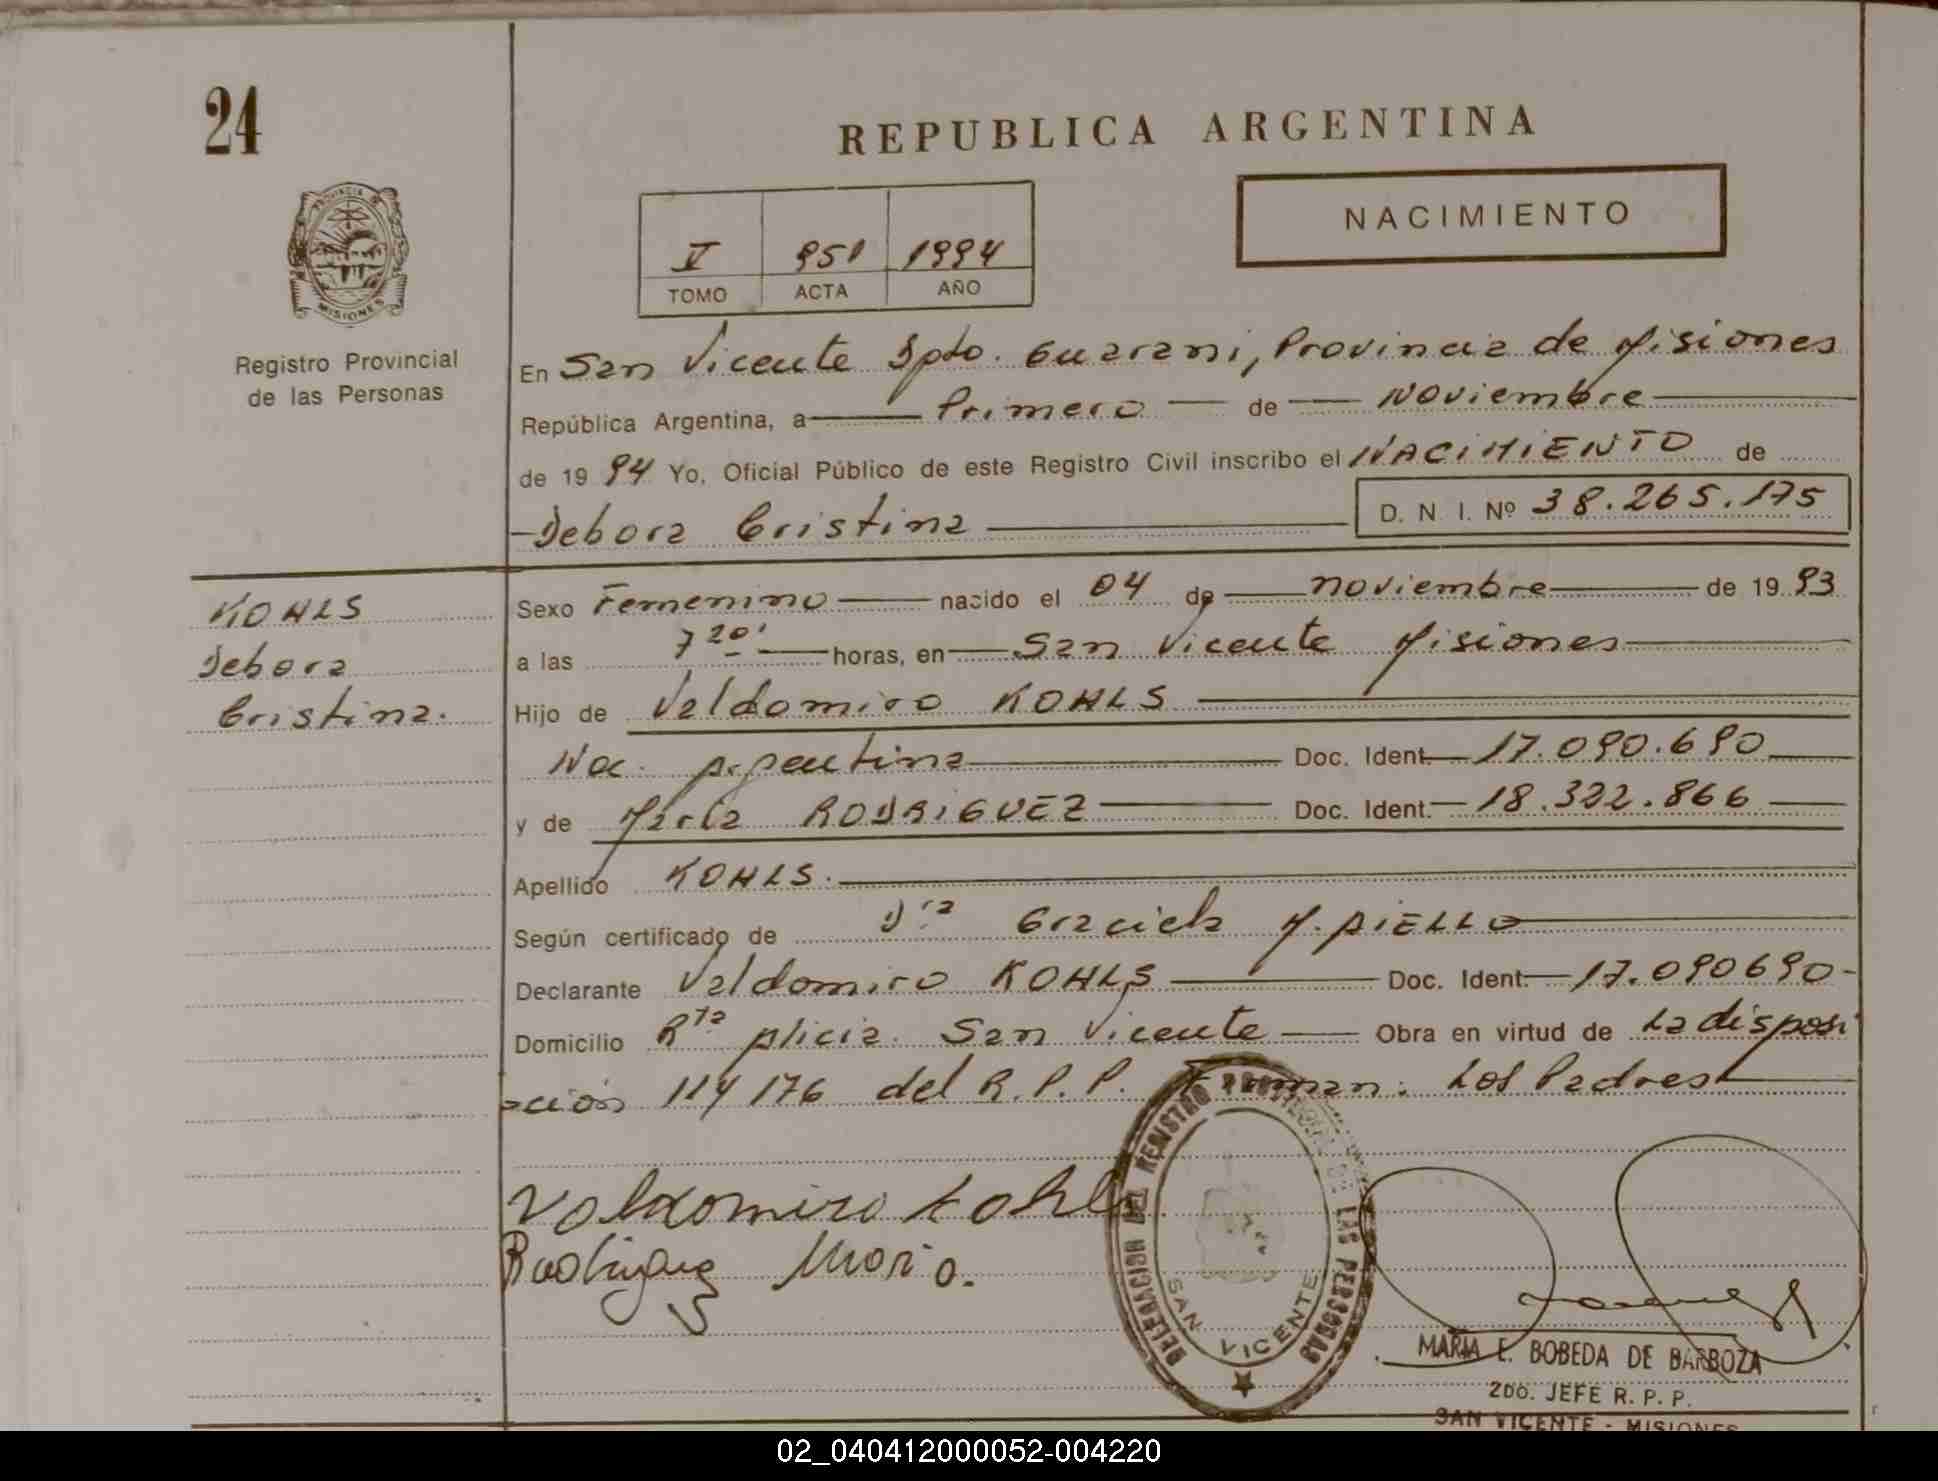 24
REPUBLICA ARGENTINA
NACIMIENTO
V 951 1994
TOMO ACTA AÑO
PROVINCIA DE
MISIONES
Registro Provincial
de las Personas
En San Vicente Dpto. Guarani, Provincia de Misiones
República Argentina, a Primero de Noviembre
de 1994 Yo, Oficial Público de este Registro Civil inscribo el NACIMIENTO de
Debora Cristina D. N. I. Nº 38.265.175
KOHLS
Debora
Cristina.
Sexo Femenino nacido el 04 de noviembre de 1993
a las 7 20' horas, en San Vicente Misiones
Hijo de Valdomiro KOHLS
Nac. Argentina Doc. Ident. 17.090.690
y de Maria RODRIGUEZ Doc. Ident. 18.322.866
Apellido KOHLS.
Según certificado de Dra Graciela M. AIELLO
Declarante Valdomiro KOHLS Doc. Ident. 17.090690
Domicilio Rta Alicia. San Vicente Obra en virtud de La disposi
ción 114/176 del R.P.P. Firman: Los Padres
Valdomiro Kohls
Rodriguez Maria.
DELEGACION DEL REGISTRO PROVINCIAL DE LAS PERSONAS
SAN VICENTE
MARIA E. BOBEDA DE BARBOZA
2DO. JEFE R. P. P.
SAN VICENTE - MISIONES
02_040412000052-004220